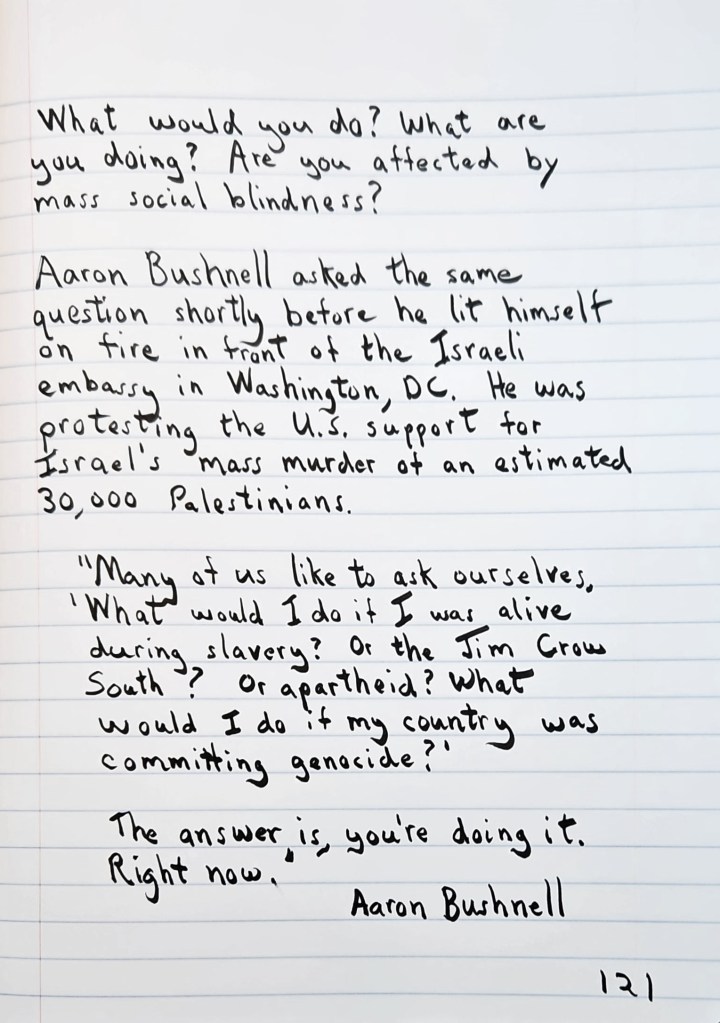 What would you do? What are
you doing? Are you affected by
mass social blindness?
Aaron Bushnell asked the same
question shortly before he lit himself
on fire in front of the Israeli
embassy in Washington, DC. He was
protesting the U.S. support for
Israel's mass murder of an estimated
30,000 Palestinians.
"Many of us like to ask ourselves,
'What would I do if I was alive
during slavery? Or the Jim Crow
South? Or apartheid? What
would I do if my country was
committing genocide?'
The answer is, you're doing it.
Right now."
Aaron Bushnell
121